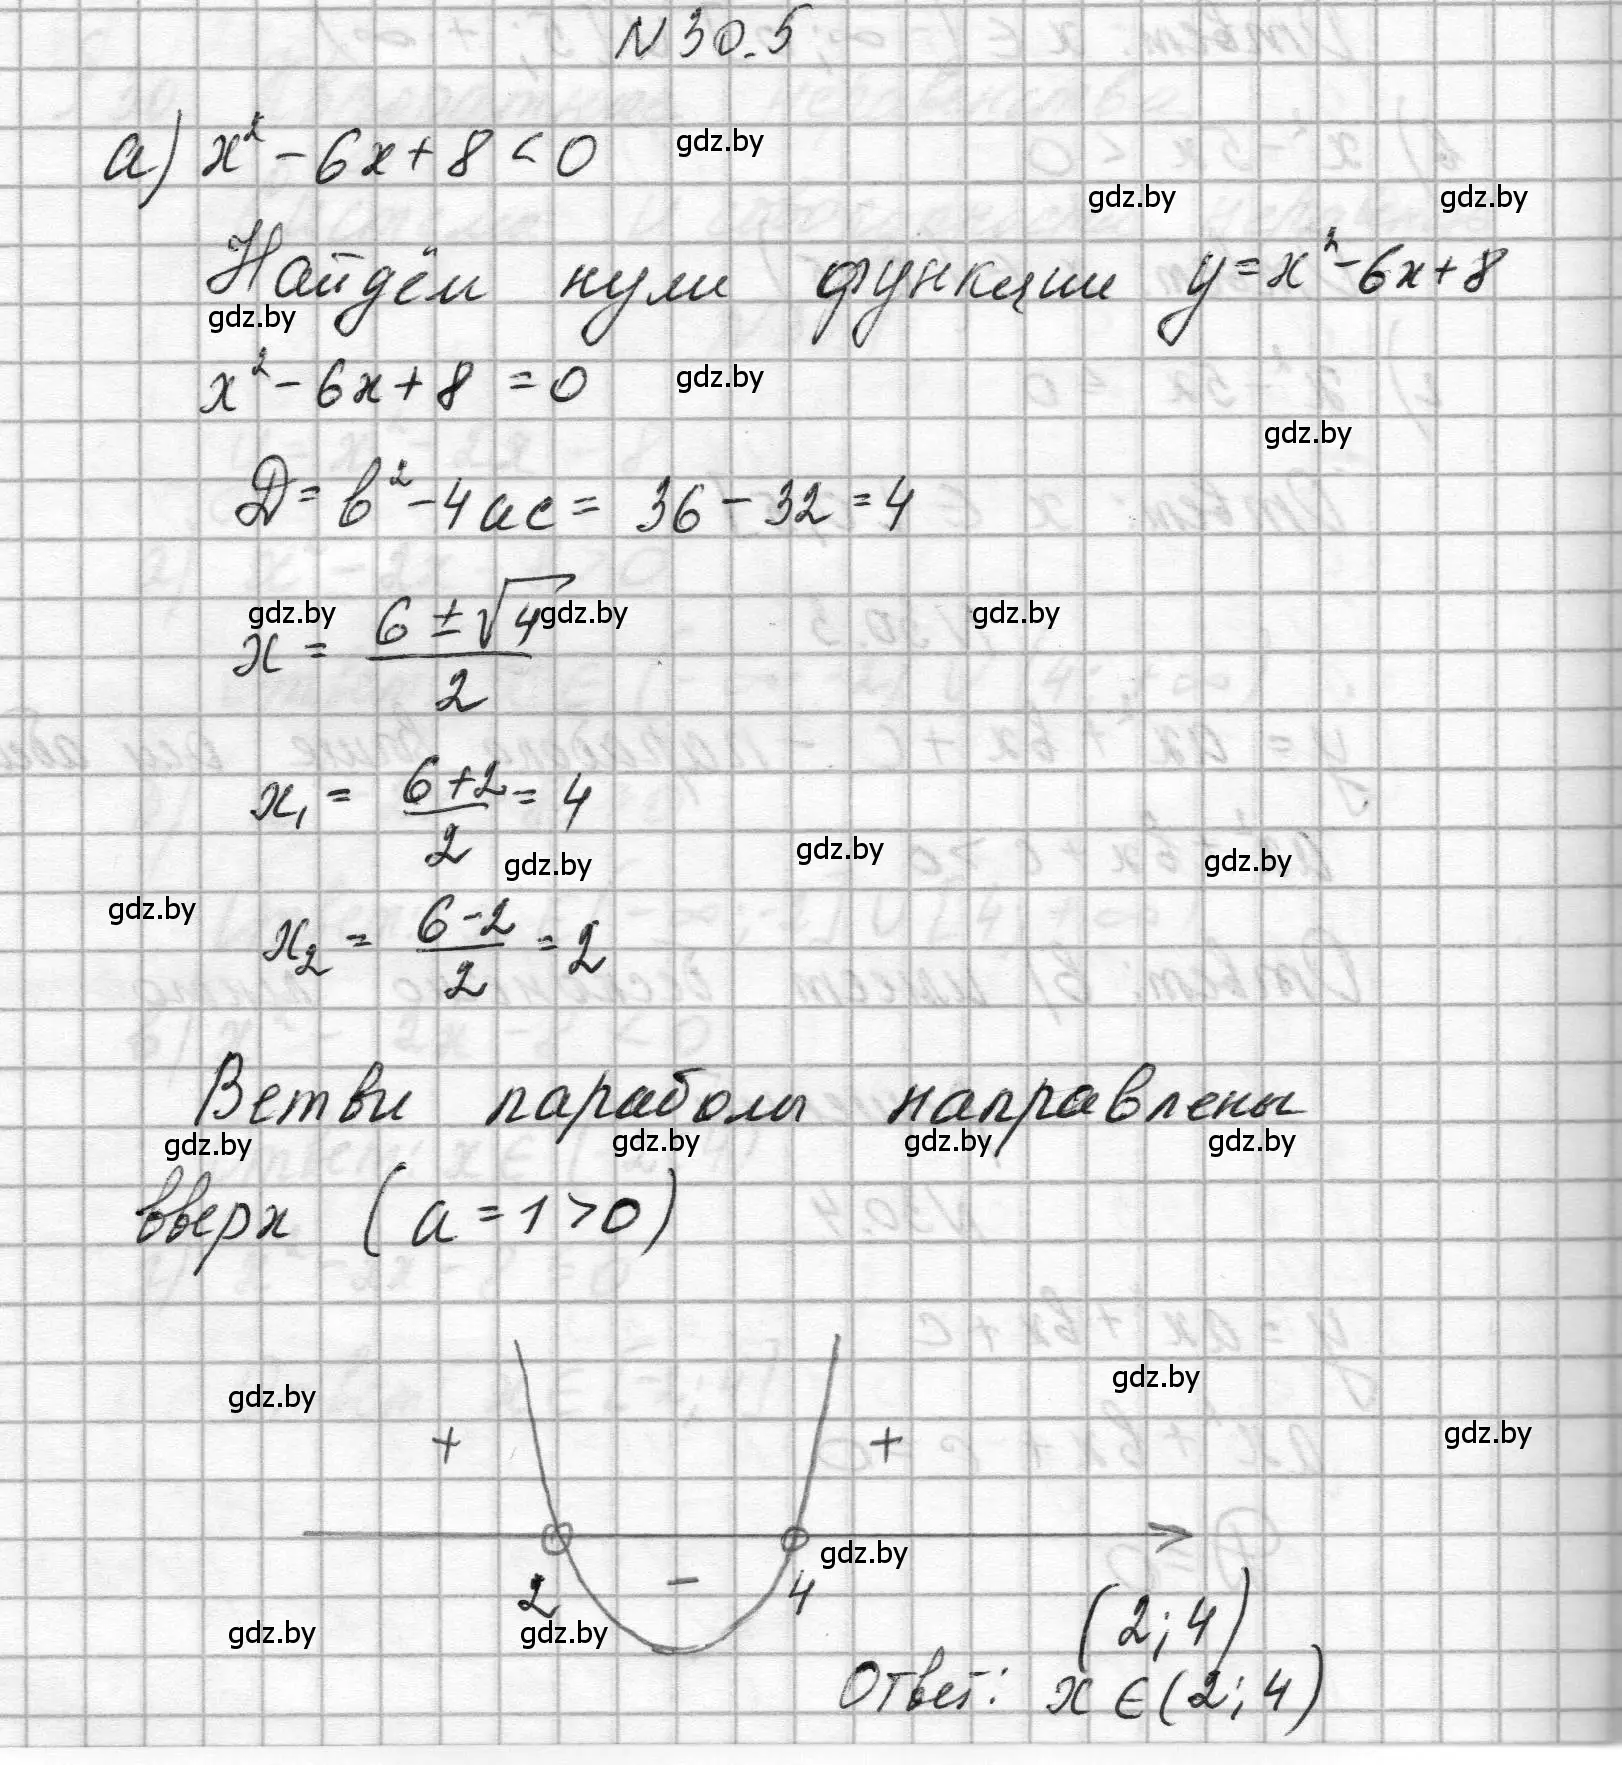 N 30.5
а) x² - 6x + 8 < 0
gdz.by
gdz.by gdz.by
Найдём нули функции y = x² - 6x + 8
gdz.by
x² - 6x + 8 = 0 gdz.by
gdz.by
D = b² - 4ac = 36 - 32 = 4
gdz.by gdz.by gdz.by
x = (6 ± √4)/2
x₁ = (6+2)/2 = 4
gdz.by gdz.by gdz.by
gdz.by
x₂ = (6-2)/2 = 2
Ветви параболы направлены
gdz.by gdz.by gdz.by gdz.by
вверх (a = 1 > 0)
gdz.by gdz.by
+ + gdz.by
gdz.by
2 - 4
gdz.by gdz.by (2; 4)
Ответ: x ∈ (2; 4)